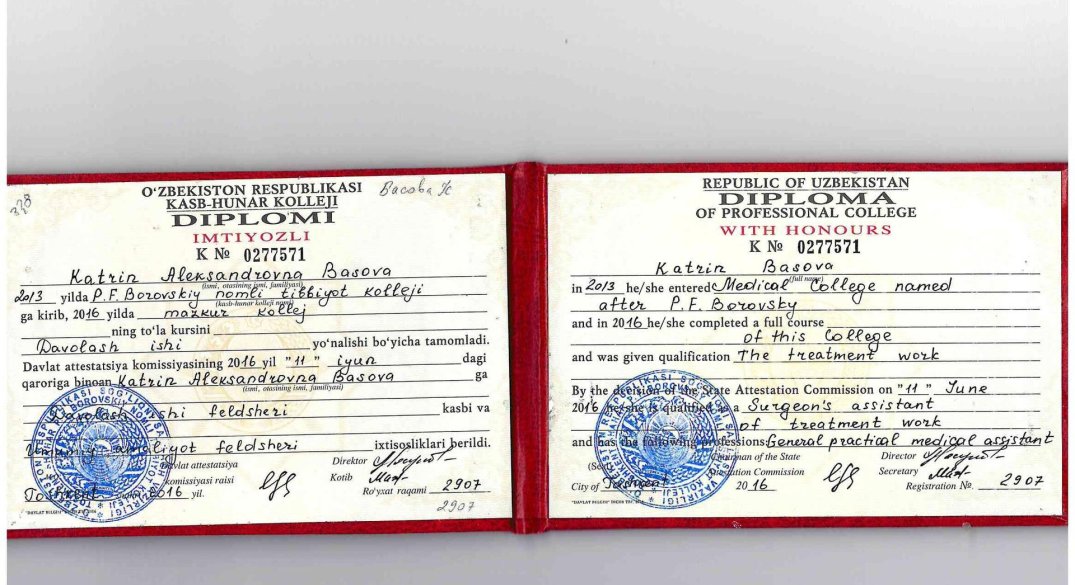 338
O‘ZBEKISTON RESPUBLIKASI
Басова К
KASB-HUNAR KOLLEJI
DIPLOMI
IMTIYOZLI
K № 0277571
Katrin Aleksandrovna Basova
(ismi, otasining ismi, familiyasi)
2013 yilda P.F. Borovskiy nomli tibbiyot kolleji
(kasb-hunar kolleji nomi)
ga kirib, 2016 yilda mazkur kollej
ning to‘la kursini
Davolash ishi yo‘nalishi bo‘yicha tamomladi.
Davlat attestatsiya komissiyasining 2016 yil "11" iyun dagi
qaroriga binoan Katrin Aleksandrovna Basova ga
(ismi, otasining ismi, familiyasi)
Davolash ishi feldsheri kasbi va
Umumiy amaliyot feldsheri ixtisosliklari berildi.
Davlat attestatsiya Direktor
komissiyasi raisi Kotib
Toshkent 2016 yil. Ro‘yxat raqami 2907
2907
REPUBLIC OF UZBEKISTAN
DIPLOMA
OF PROFESSIONAL COLLEGE
WITH HONOURS
K № 0277571
Katrin Basova
(full name)
in 2013 he/she entered Medical College named
after P.F. Borovsky
and in 2016 he/she completed a full course
of this College
and was given qualification The treatment work
By the decision of the State Attestation Commission on "11" June
2016 he/she is qualified as a Surgeon's assistant
of treatment work
and has the following professions General practical medical assistant
Chairman of the State Director
(Seal) Attestation Commission Secretary
City of Toshkent 2016 Registration №. 2907